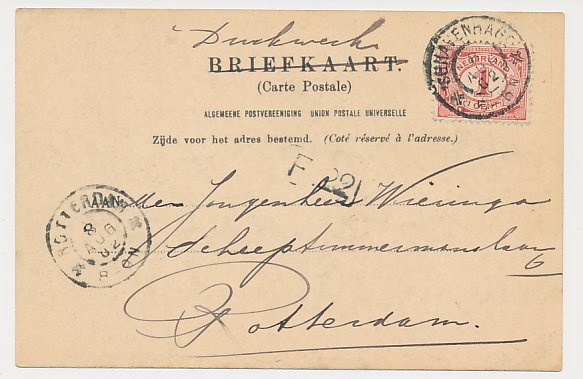 Drukwerk
BRIEFKAART.
(Carte Postale)
ALGEMEENE POSTVEREENIGING UNION POSTALE UNIVERSELLE
Zijde voor het adres bestemd. (Coté réservé à l'adresse.)
NEDERLAND
1
CENT
F 22
AAN
ROTTERDAM
8
AUG
02
8
ON
den Jongenheer Wieringa
Scheeptimmermanslaan
6
Rotterdam.